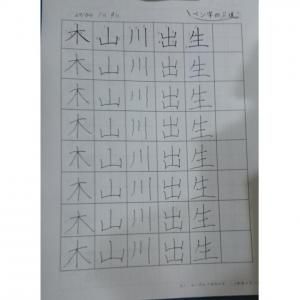 木山川出生
木山川出生
木山川出生
木山川出生
木山川出生
木山川出生
木山川出生
木山川出生